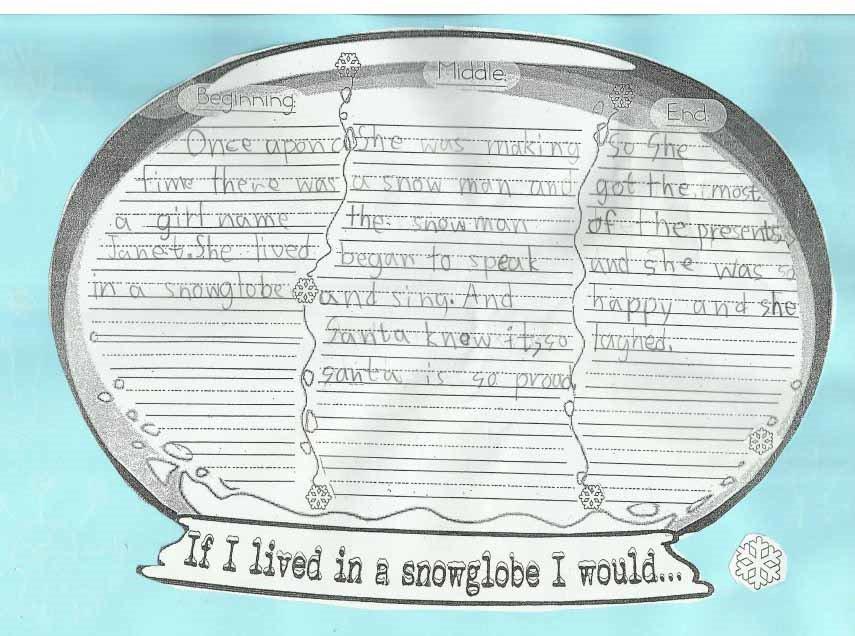 Beginning:
Once upon a
time there was
a girl name
Janet. She lived
in a snowglobe
Middle:
She was making
a snow man and
the snowman
began to speak
and sing. And
Santa know it, so
santa is so proud,
End:
So She
got the most
of the presents,
and she was so
happy and she
laghed.
If I lived in a snowglobe I would...